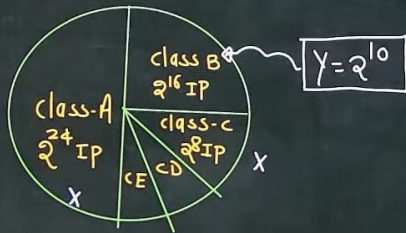 class B
2^16 IP
Y=2^10
class-A
2^24 IP
class-C
2^8 IP
CE
CD
X
X